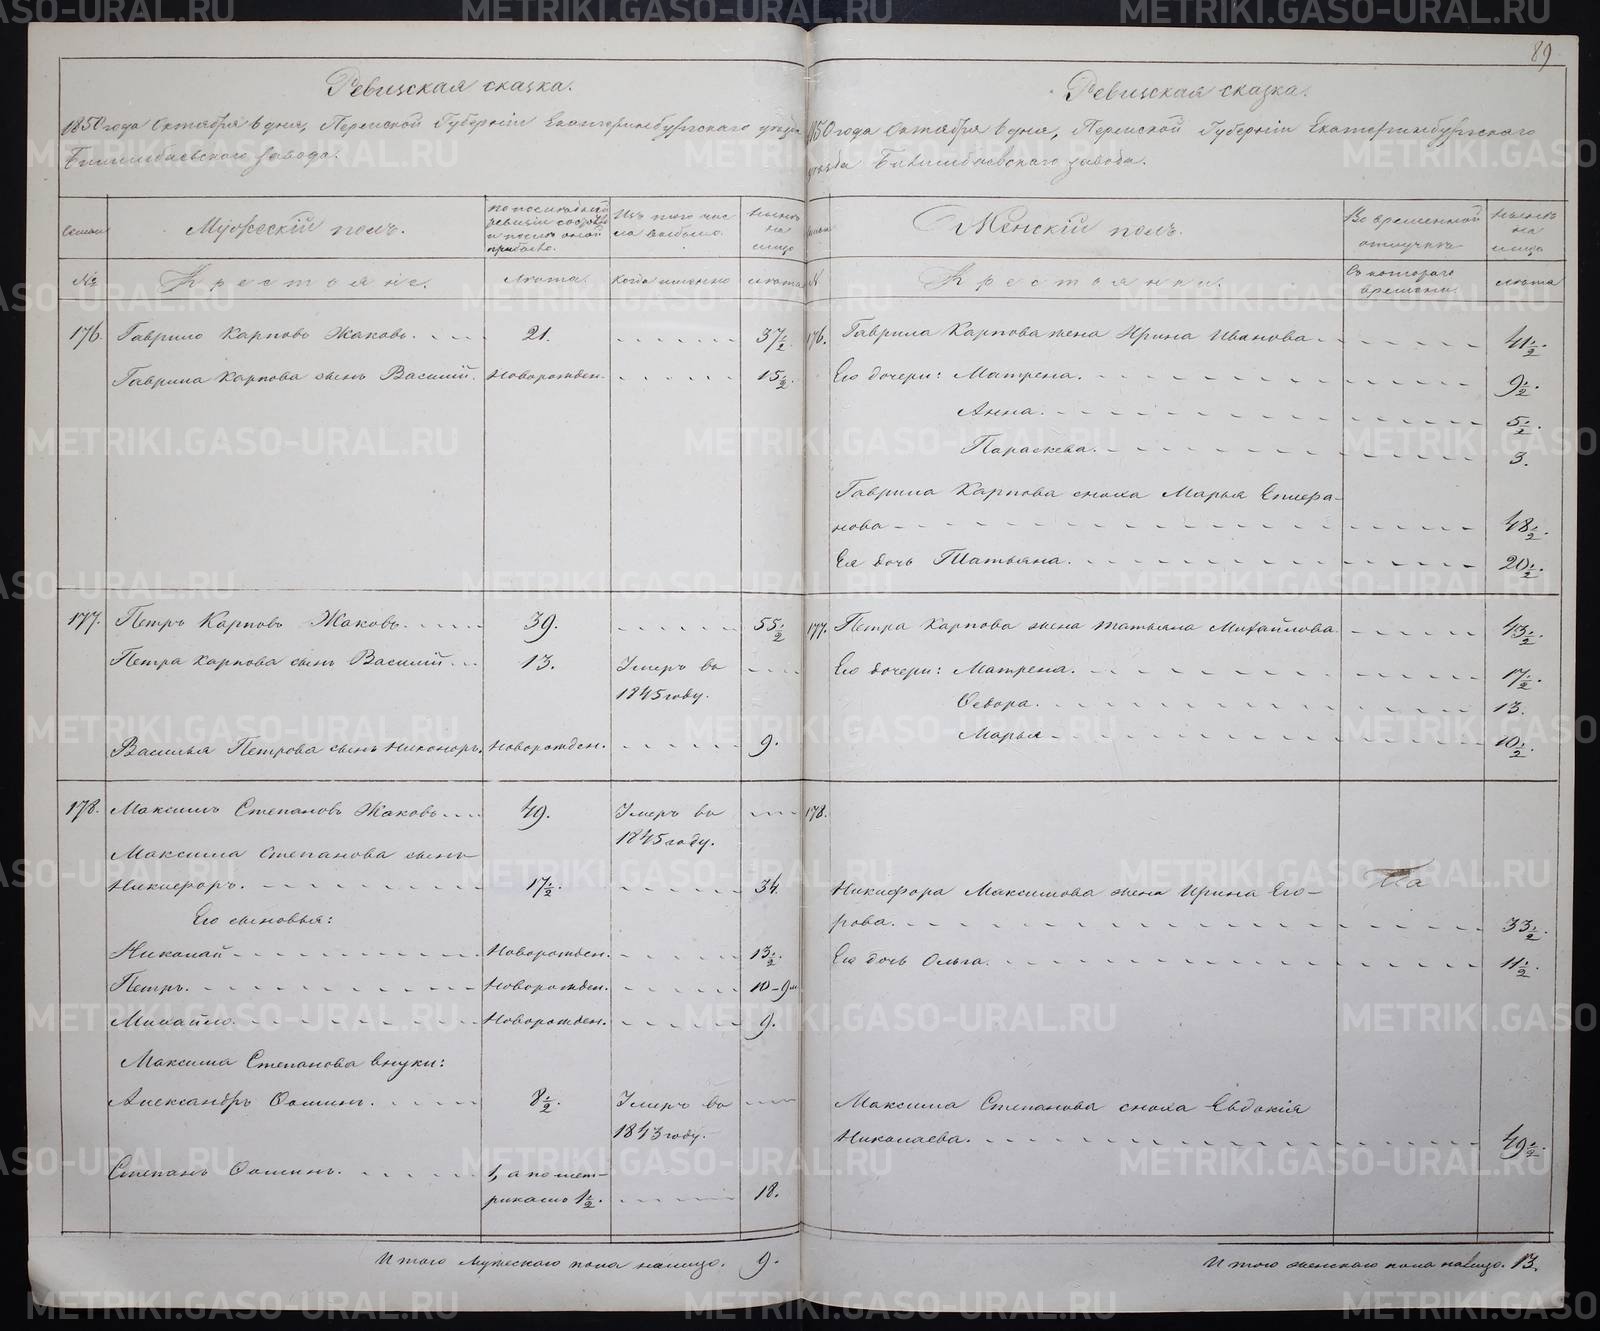 89
Ревизская сказка.
1850 года Октября 6 дня, Пермской Губерніи Екатеринбургскаго уезда
Билимбаевскаго завода.
Семьи
Мужескій полъ.
по последней ревизіи состояло и после оной прибыло.
Изъ того числа выбыло.
Ныне на лицо
№
Крестьяне.
Лета.
Когда именно
лета
176. Гаврило Карповъ Жаковъ. 21. 37½.
Гаврила Карпова сынъ Василій. Новорожден. 15½.
177. Петръ Карповъ Жаковъ. 39. 55½
Петра Карпова сынъ Василій. 13. Умеръ въ
1845 году.
Василья Петрова сынъ Никоноръ. Новорожден. 9.
178. Максимъ Степановъ Жаковъ. 49. Умеръ въ
1845 году.
Максима Степанова сынъ
Никифоръ. 17½. 34.
Его сыновья:
Николай Новорожден. 13½.
Петръ. Новорожден. 10-9м
Михайло. Новорожден. 9.
Максима Степанова внуки:
Александръ Фоминъ. 8½. Умеръ въ
1843 году.
Степанъ Фоминъ. 1, а по мет-
рикамъ 1½. 18.
Итого мужескаго пола налицо. 9.
Ревизская сказка.
1850 года Октября 6 дня, Пермской Губерніи Екатеринбургскаго
уезда Билимбаевскаго завода.
Женскій полъ.
Во временной отлучке
Ныне на лицо
№
Крестьянки.
Съ котораго времени.
лета
176. Гаврила Карпова жена Ирина Иванова 41½.
Его дочери: Матрена. 9½.
Анна. 5½.
Параскева. 3.
Гаврила Карпова сноха Марья Епифа-
нова 48½.
Ея дочь Татьяна. 20½.
177. Петра Карпова жена Татьяна Михайлова 43½.
Его дочери: Матрена. 17½.
Федора. 13.
Марья 10½.
178.
Никифора Максимова жена Ирина Его-
рова. 33½.
Его дочь Ольга. 11½.
Максима Степанова сноха Евдокія
Николаева. 49½.
Итого женскаго пола налицо. 13.
METRIKI.GASO-URAL.RU